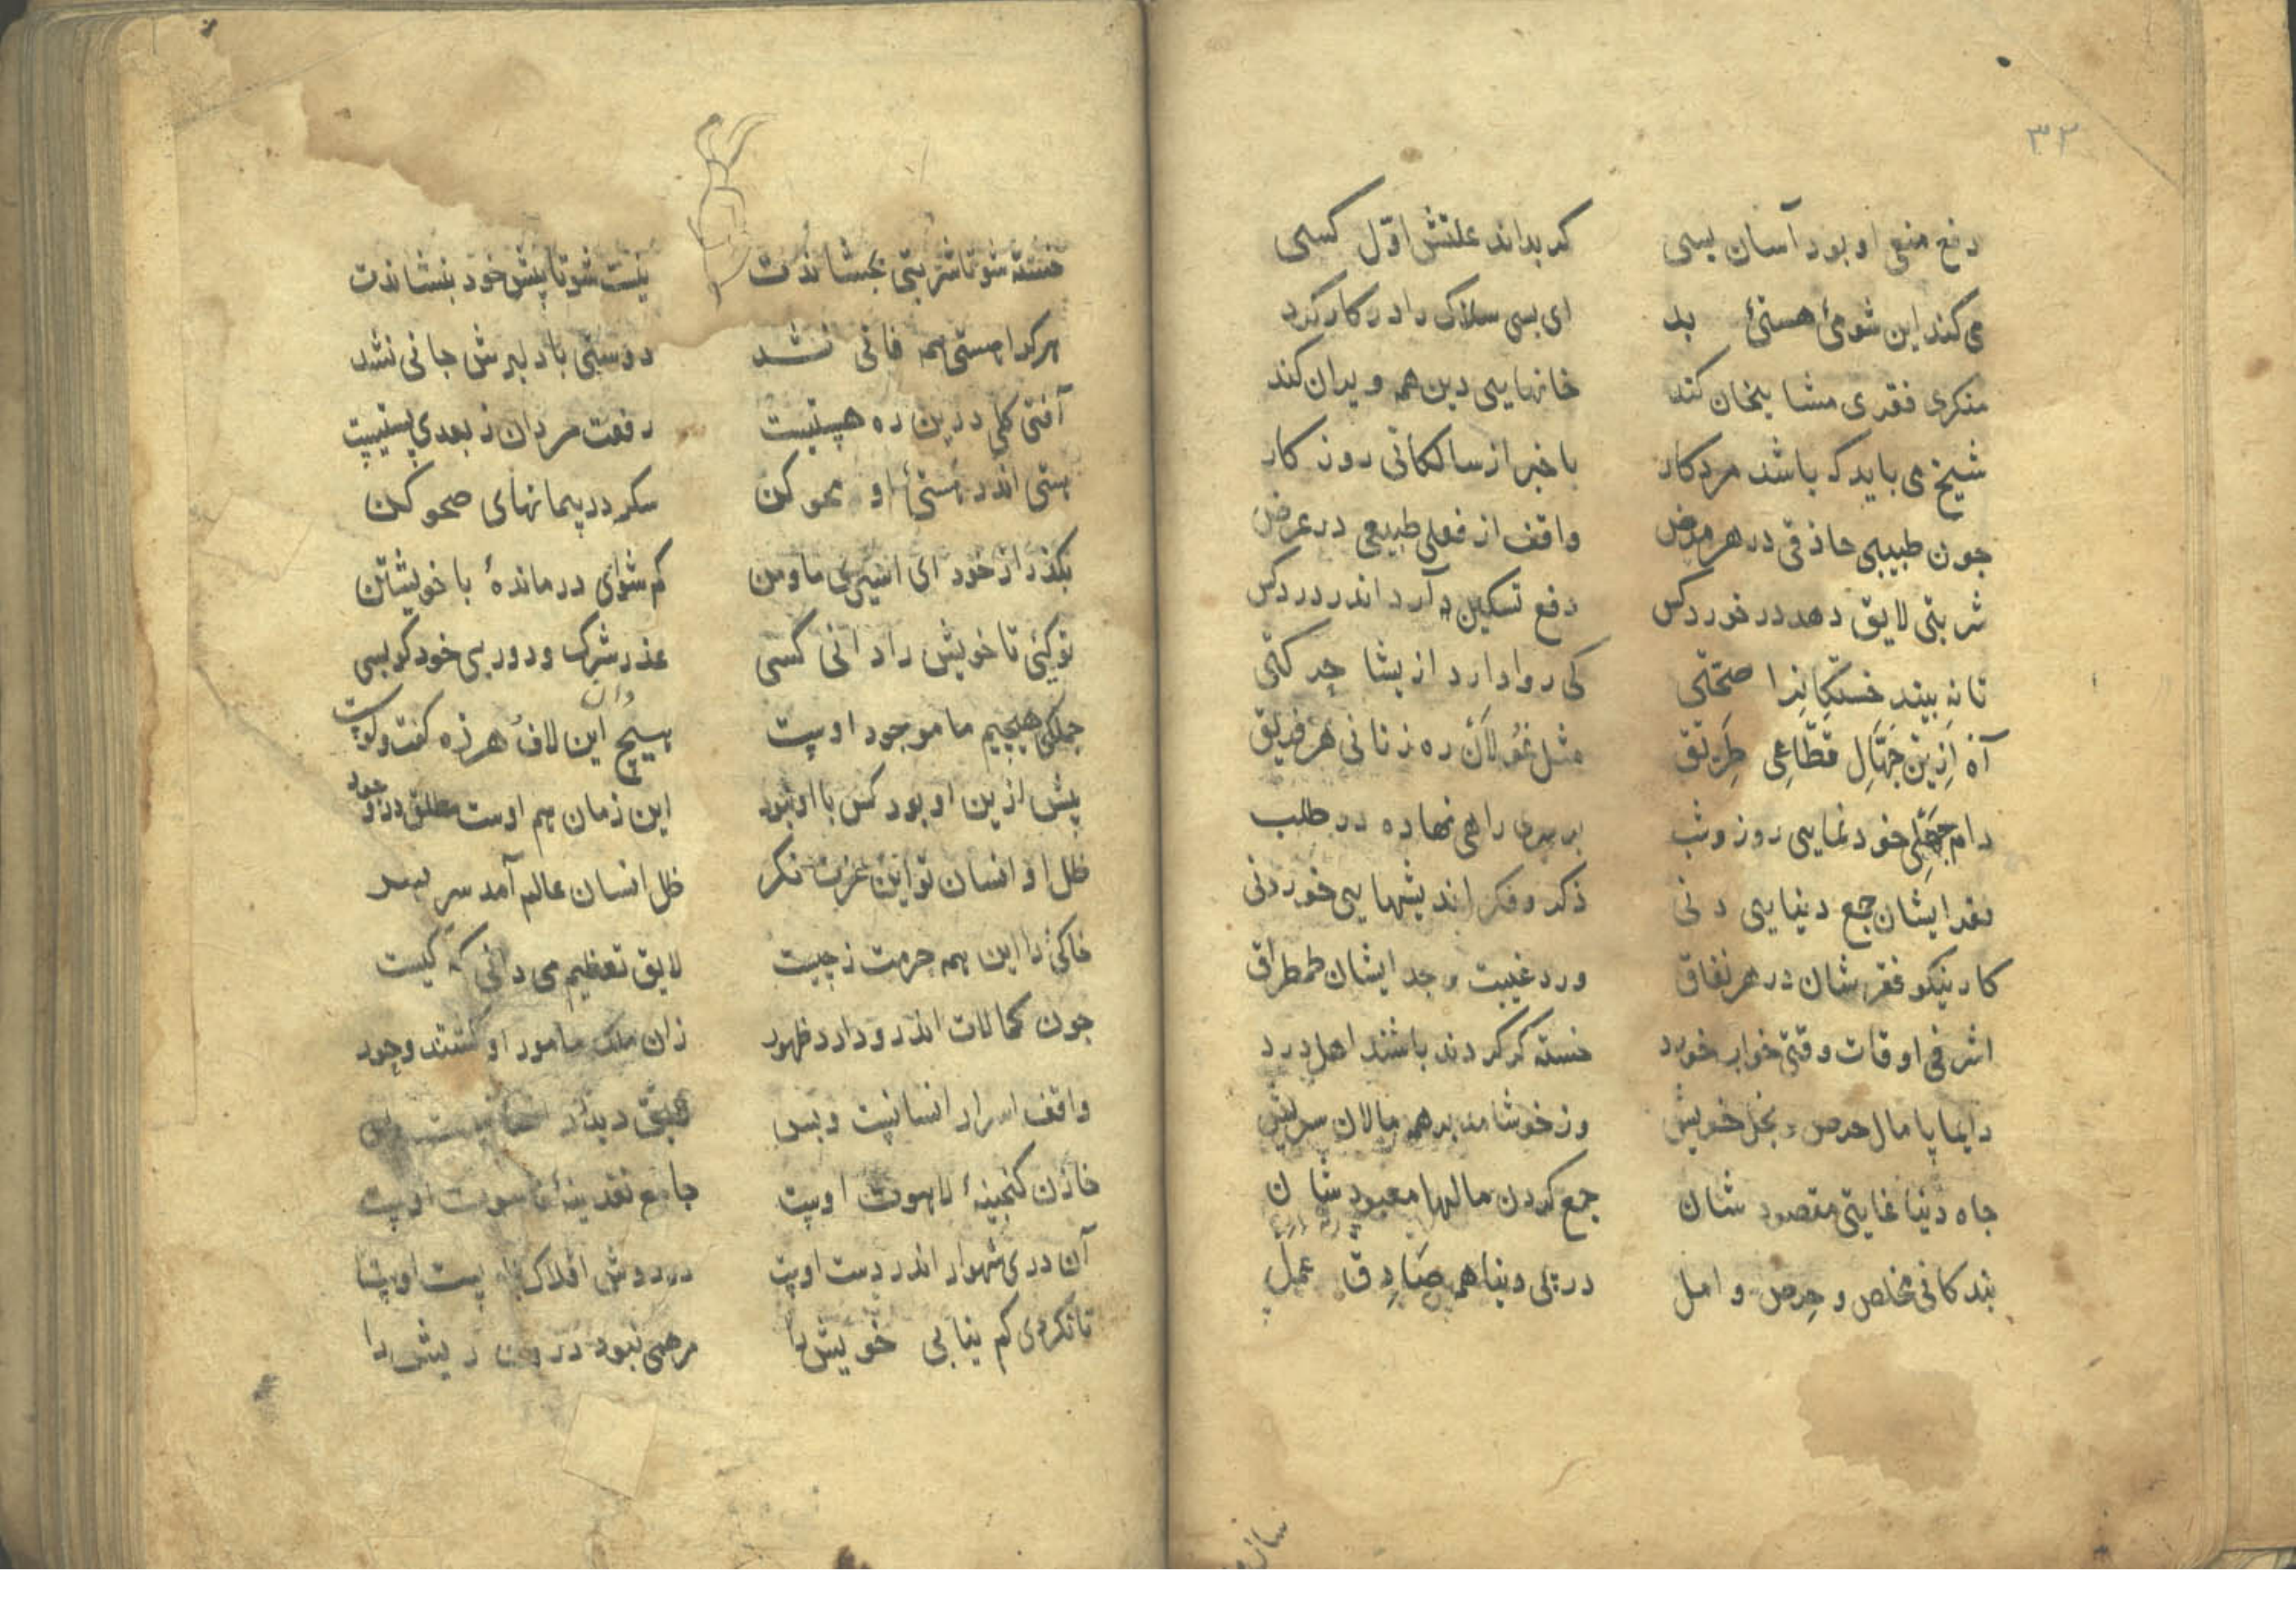 ۳۲
دفع منعی او بود آسان بسی کر بداند علتش اوّل کسی
می کند این شومئ هستئ بد ای بسی سلاک را در کار کرد
منکری فقری مشایخان کند خانهایی دین همه ویران کند
شیخ می باید که باشد مرد کار با خبر از سالکانی روزکار
جون طبیبی حاذقی در هر مرض واقف از فعلی طبیعی در عرض
شربتی لایق دهد در خورد کس دفع تسکین آرد اندر درد کس
تا نه بیند خستکانرا صحّتی کی روا دارد ازیشا
آه ازین جهّال قطّاعی طریق مثل غولان ره زنانی هر فریق
دام جهلی خود نمایی روز وشب بر سری راهی نهاده در طلب
نقد ایشان جمع دنیایی دنی ذکر و فکر اندیشهایی خوردنی
کار نیکو فقر شان در هر نفاق ورد غیبت وجد ایشان طمطراق
اشرفی اوقات وقتی خواب خورد خسته کر کردند باشند اهل درد
دایما پامال حرص و بخل خویش وز خوشامد بر همه مالان سریش
جاه دنیا غایتی مقصود شان جمع کردن مالها معبود شان
بندکانی مخلص و حرص و امل در پی دنیا همه صادق عمل
خسته شو تا شربتی بخشاندت نیست شو تا پیش خود بنشاندت
هرکرا هستی همه فانی نشد دوستی با دلبرش جانی نشد
آفتی کلی درین ره هستیست رفعت مردان ز بعدی پستیست
هستی اندر هستئ او محو کن سکر در پیمانهای صحو کن
بکذر از خود ای اسیری ما و من کم شوای درماندهٔ با خویشتن
تو کیئی تا خویش را دانی کسی عذر شرک و دور بی خود کو بسی
جملکی هیچیم ما موجود اوست هیچ دان این لاف هرزه کفت و کوست
پیش ازین او بود کس با او نبود این زمان هم اوست مطلق در وجود
ظل او انسان تو این عزت نکر ظل انسان عالم آمد سر بسر
خاکئ را این همه حرمت ز چیست لایق تعظیم می دانی که کیست
جون کمالات اندرو دارد ظهور زان ملک مامور او کشتند وجود
واقف اسرار انسانیت وبس دیدار
خازن کنجینهٔ لاهوت اوست جامع نقدینهٔ ناسوت اوست
آن دری شهوار اندر دست اوست در دوش افلاک پست اوست
تا نکردی کم نیابی خویش را مرهمی نبود درون ریش را